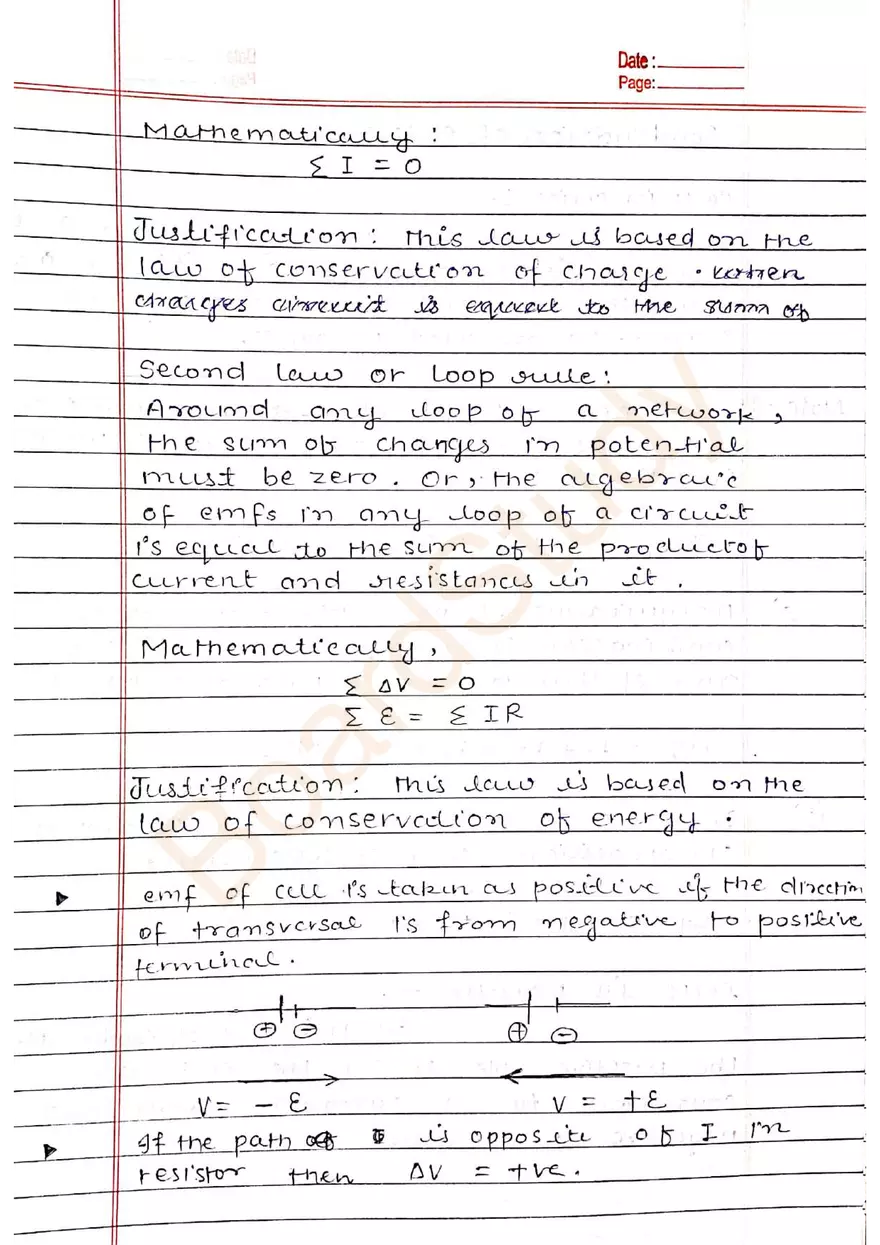 Date :
Page:
Mathematically :
Σ I = 0
Justification : This law is based on the
law of conservation of charge .
is to the sum of
Second law or Loop rule :
Around any loop of a network ,
the sum of changes in potential
must be zero . Or , the algebraic
of emfs in any loop of a circuit
is equal to the sum of the product of
current and resistances in it .
Mathematically ,
Σ ΔV = 0
Σ ε = Σ IR
Justification : This law is based on the
law of conservation of energy .
emf of cell is taken as positive if the direction
of transversal is from negative to positive
terminal .
+ - + -
V = - ε V = + ε
If the path is opposite of I in
resistor then ΔV = +ve .
BoardStudy